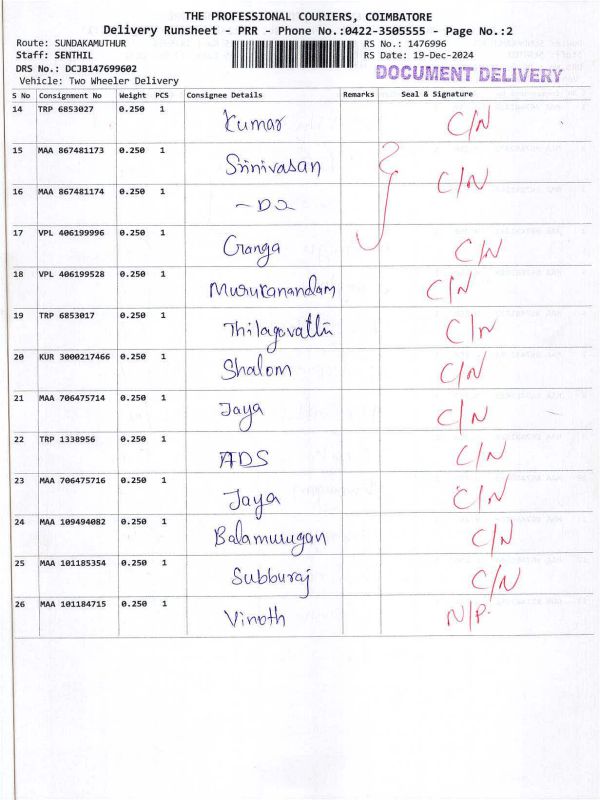 THE PROFESSIONAL COURIERS, COIMBATORE
Delivery Runsheet - PRR - Phone No.:0422-3505555 - Page No.:2
Route: SUNDAKAMUTHUR RS No.: 1476996
Staff: SENTHIL RS Date: 19-Dec-2024
DRS No.: DCJB147699602 DOCUMENT DELIVERY
Vehicle: Two Wheeler Delivery
S No Consignment No Weight PCS Consignee Details Remarks Seal & Signature
14 TRP 6853027 0.250 1 Kumar C/N
15 MAA 867481173 0.250 1 Srinivasan C/N
16 MAA 867481174 0.250 1 - DO
17 VPL 406199996 0.250 1 Cranga C/N
18 VPL 406199528 0.250 1 Murukanandam C/N
19 TRP 6853017 0.250 1 Thilagovathi C/N
20 KUR 3000217466 0.250 1 Shalom C/N
21 MAA 706475714 0.250 1 Jaya C/N
22 TRP 1338956 0.250 1 ADS C/N
23 MAA 706475716 0.250 1 Jaya C/N
24 MAA 109494082 0.250 1 Balamurugan C/N
25 MAA 101185354 0.250 1 Subburaj C/N
26 MAA 101184715 0.250 1 Vinoth N/P.